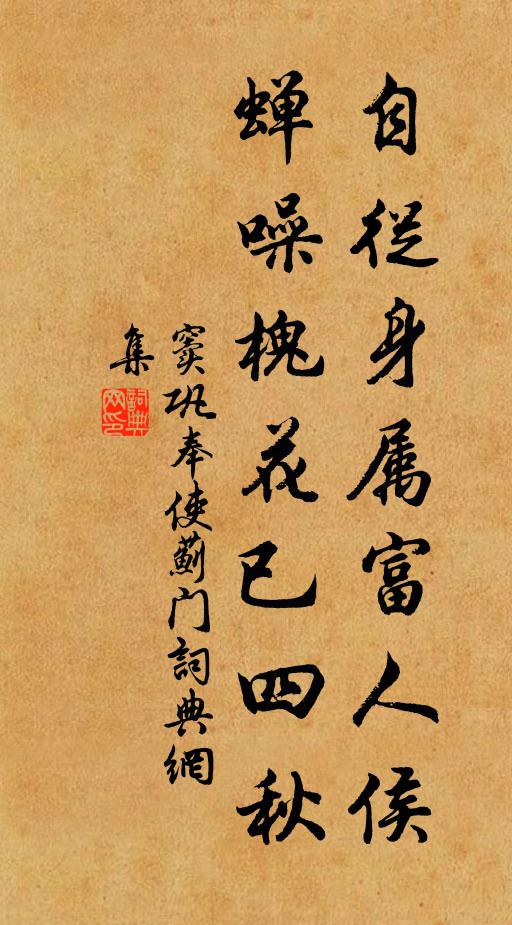 自从身属富人侯
蝉噪槐花已四秋
窦巩奉使蓟门詞典網
集
詞典
网印